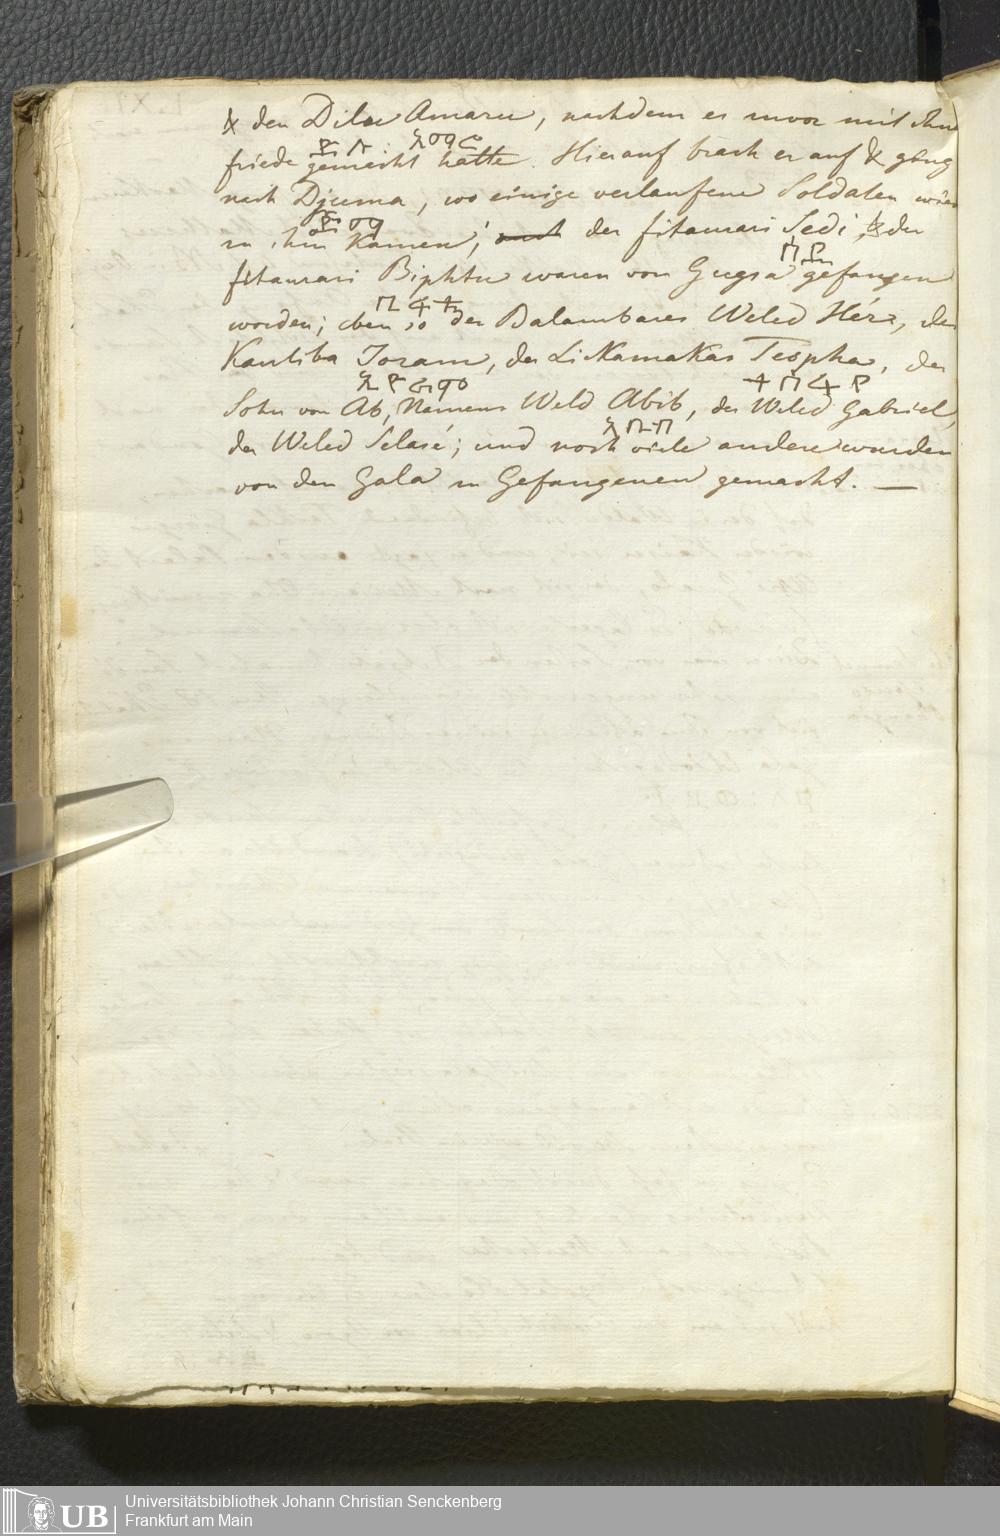 & den Dilu Amaru, nachdem er zuvor mit ihm
friede gemacht hatte. Hierauf brach er auf & gieng
nach Djuma, wo einige verlaufene Soldaten wieder
zu ihm kamen; der fitaurari Sedi, & der
fitaurari Biphtu waren von Gugsa gefangen
worden; eben so der Balambares Weled Hére, der
Kantiba Joram, der Likamakas Tespha, der
Sohn von Ab, Namens Weld Abib, der Weled Gabriel,
der Weled Selasé; und noch viele andere wurden
von den Gala zu Gefangenen gemacht. —
UB
Universitätsbibliothek Johann Christian Senckenberg
Frankfurt am Main